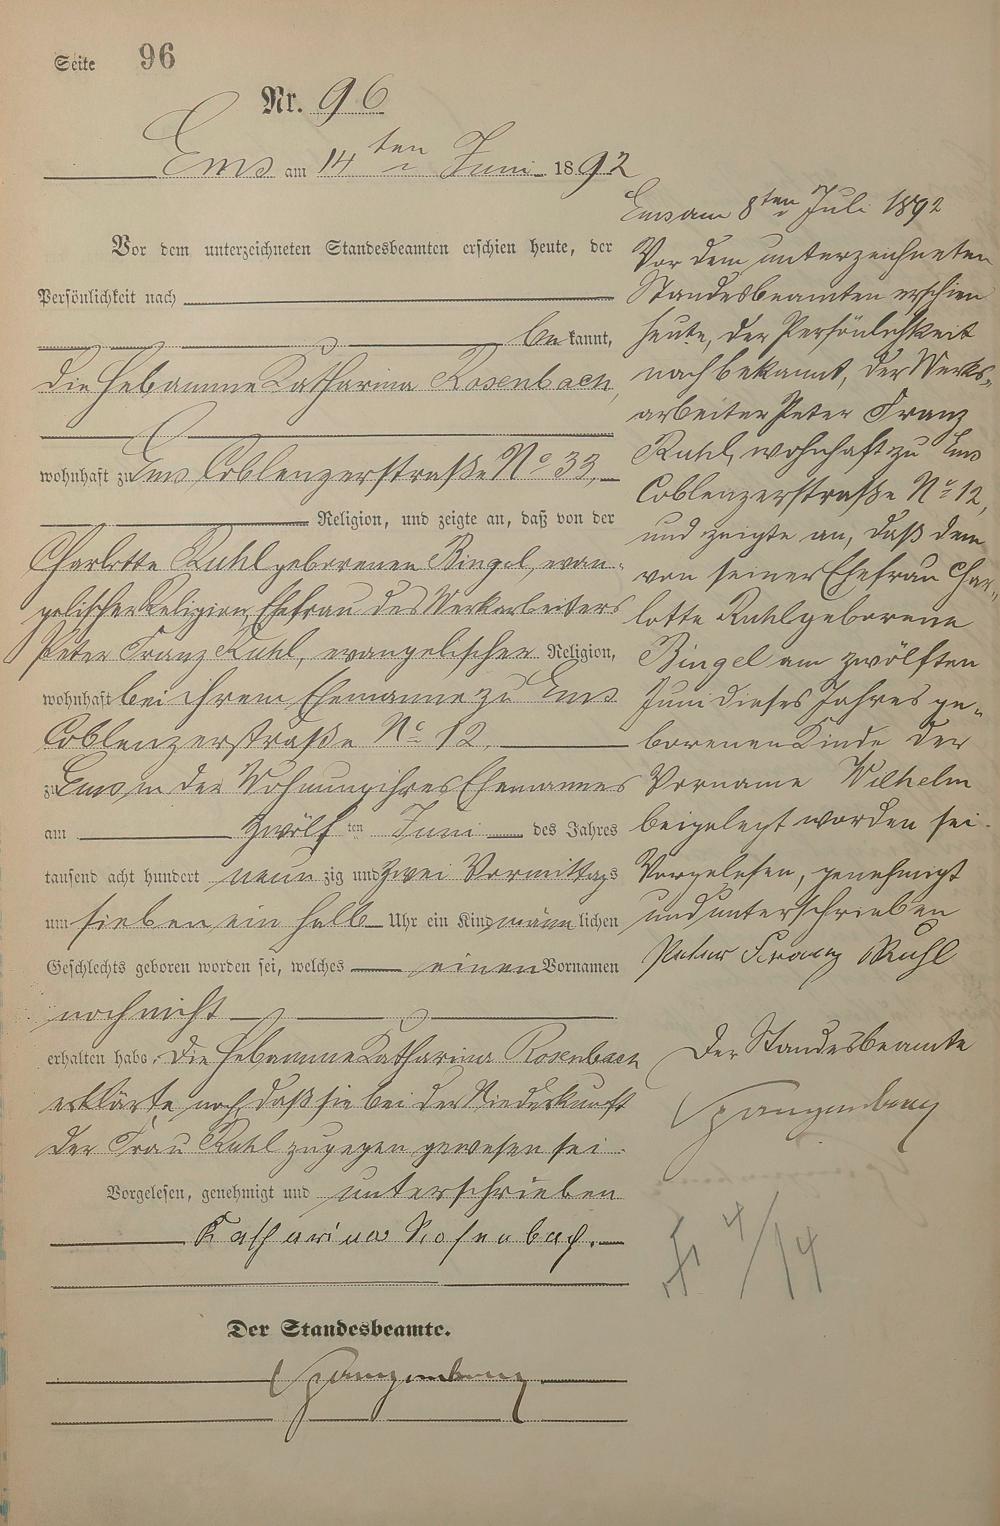 Seite 96
Nr. 96
Ems am 14ten Juni 1892
Vor dem unterzeichneten Standesbeamten erschien heute, der
Persönlichkeit nach
be kannt,
die Hebamme Katharina Rosenbach,
wohnhaft zu Ems Coblenzerstraße No 33,
Religion, und zeigte an, daß von der
Charlotte Ruhl geborenen Bingel, evan-
gelischer Religion, Ehefrau des Werkarbeiters
Peter Franz Ruhl, evangelischer Religion,
wohnhaft bei ihrem Ehemanne zu Ems
Coblenzerstraße No 12,
zu Ems in der Wohnung ihres Ehemannes
am zwölf ten Juni des Jahres
tausend acht hundert neun zig und zwei Vormittags
um sieben ein halb Uhr ein Kind männ lichen
Geschlechts geboren worden sei, welches einen Vornamen
noch nicht
erhalten habe. Die Hebamme Katharina Rosenbach
erklärte noch, daß sie bei der Niederkunft
der Frau Ruhl zugegen gewesen sei.
Vorgelesen, genehmigt und unterschrieben
Katharina Rosenbach.
Der Standesbeamte.
Spangenberg
Ems am 8ten Juli 1892
Vor dem unterzeichneten
Standesbeamten erschien
heute, der Persönlichkeit
nach bekannt, der Werks-
arbeiter Peter Franz
Ruhl, wohnhaft zu Ems
Coblenzerstraße No 12,
und zeigte an, daß dem
von seiner Ehefrau Char-
lotte Ruhl geborene
Bingel am zwölften
Juni dieses Jahres ge-
borenen Kinde der
Vorname Wilhelm
beigelegt worden sei.
Vorgelesen, genehmigt
und unterschrieben
Peter Franz Ruhl
Der Standesbeamte
Spangenberg